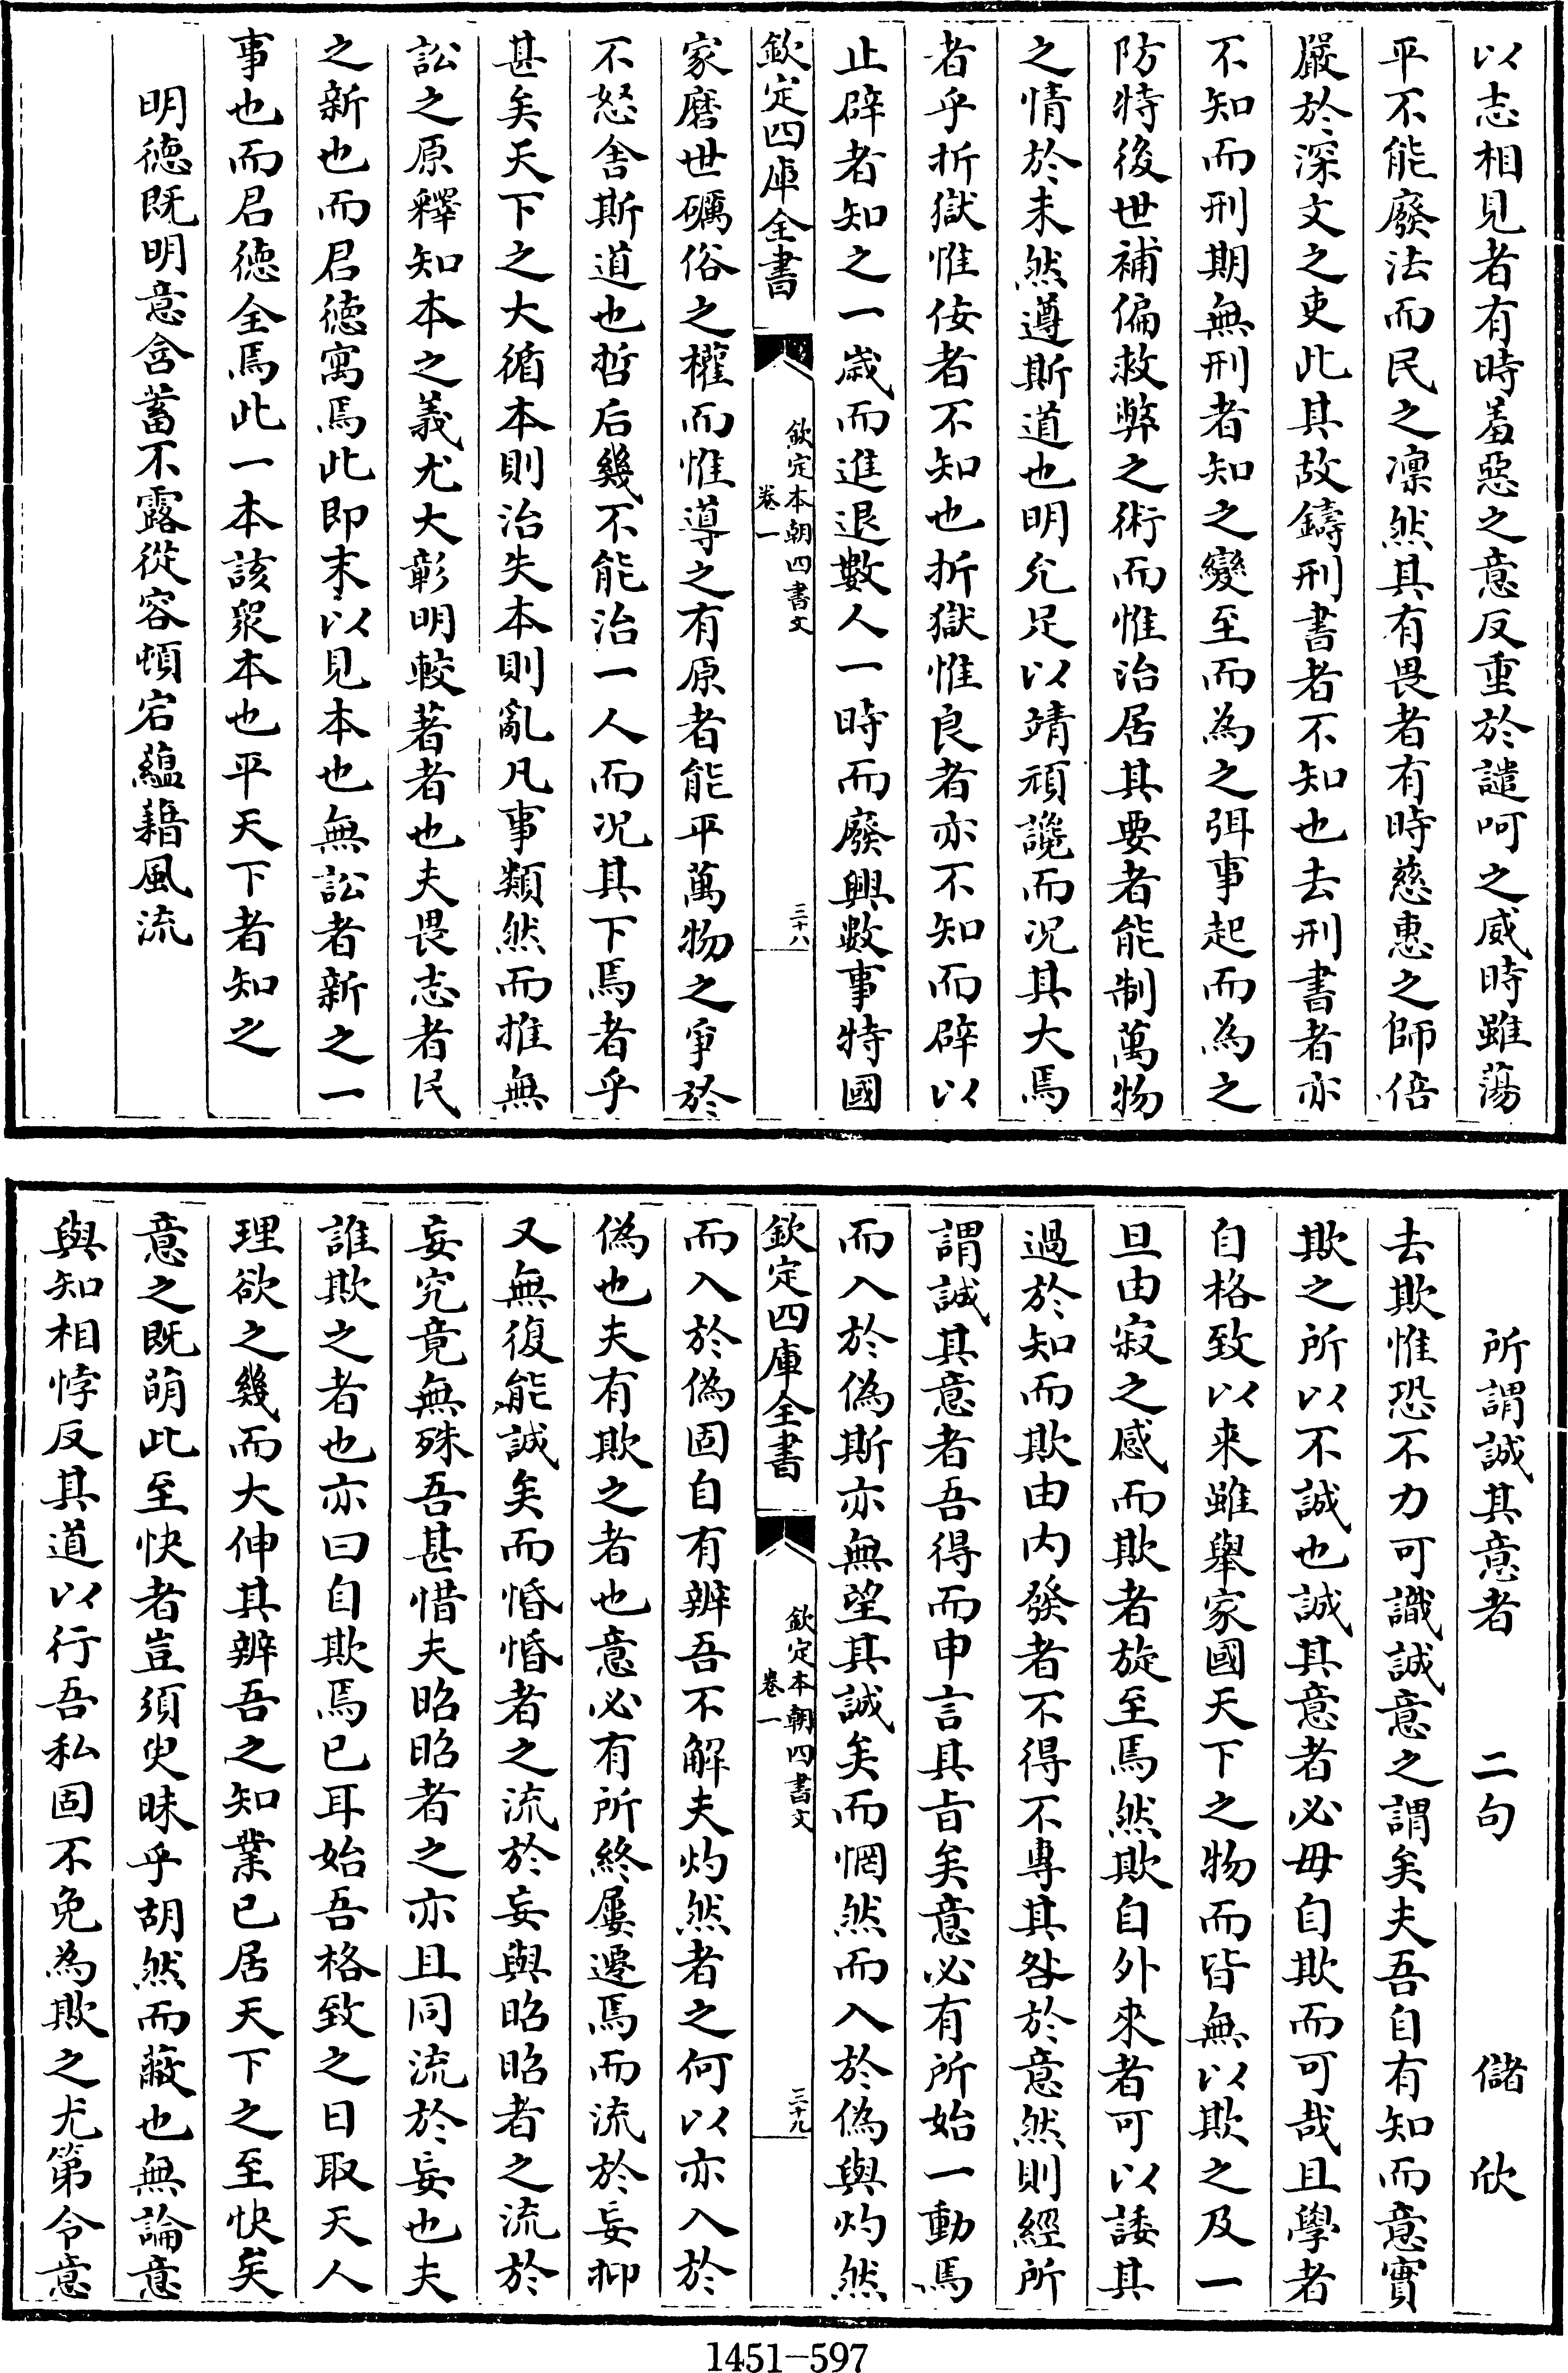 以志相見者有時羞惡之意反重於譴呵之威時雖蕩
平不能廢法而民之凜然具有畏者有時慈惠之師倍
嚴於深文之吏此其故鑄刑書者不知也去刑書者亦
不知而刑期無刑者知之變至而為之弭事起而為之
防特後世補偏救弊之術而惟治居其要者能制萬物
之情於未然遵斯道也明允足以靖頑讒而况其大焉
者乎折獄惟佞者不知也折獄惟良者亦不知而辟以
止辟者知之一歳而進退數人一時而廢興數事特國
欽定四庫全書
欽定本朝四書文
卷一
三十八
家磨世礪俗之權而惟導之有原者能平萬物之爭於
不怒舍斯道也哲后幾不能治一人而况其下焉者乎
甚矣天下之大循本則治失本則亂凡事類然而推無
訟之原釋知本之義尤大彰明較著者也夫畏志者民
之新也而君徳寓焉此即末以見本也無訟者新之一
事也而君徳全焉此一本該衆本也平天下者知之
明徳既明意含蓄不露從容頓宕藴藉風流
所謂誠其意者 二句 儲欣
去欺惟恐不力可識誠意之謂矣夫吾自有知而意實
欺之所以不誠也誠其意者必毋自欺而可哉且學者
自格致以来雖舉家國天下之物而皆無以欺之及一
旦由寂之感而欺者旋至焉然欺自外來者可以諉其
過於知而欺由内發者不得不專其咎於意然則經所
謂誠其意者吾得而申言其㫖矣意必有所始一動焉
而入於偽斯亦無望其誠矣而惘然而入於偽與灼然
欽定四庫全書
欽定本朝四書文
卷一
三十九
而入於偽固自有辨吾不解夫灼然者之何以亦入於
偽也夫有欺之者也意必有所終屢遷焉而流於妄抑
又無復能誠矣而惛惛者之流於妄與昭昭者之流於
妄究竟無殊吾甚惜夫昭昭者之亦且同流於妄也夫
誰欺之者也亦曰自欺焉已耳始吾格致之日取天人
理欲之幾而大伸其辨吾之知業已居天下之至快矣
意之既萌此至快者豈須臾昧乎胡然而蔽也無論意
與知相悖反其道以行吾私固不免為欺之尤第令意
1451-597